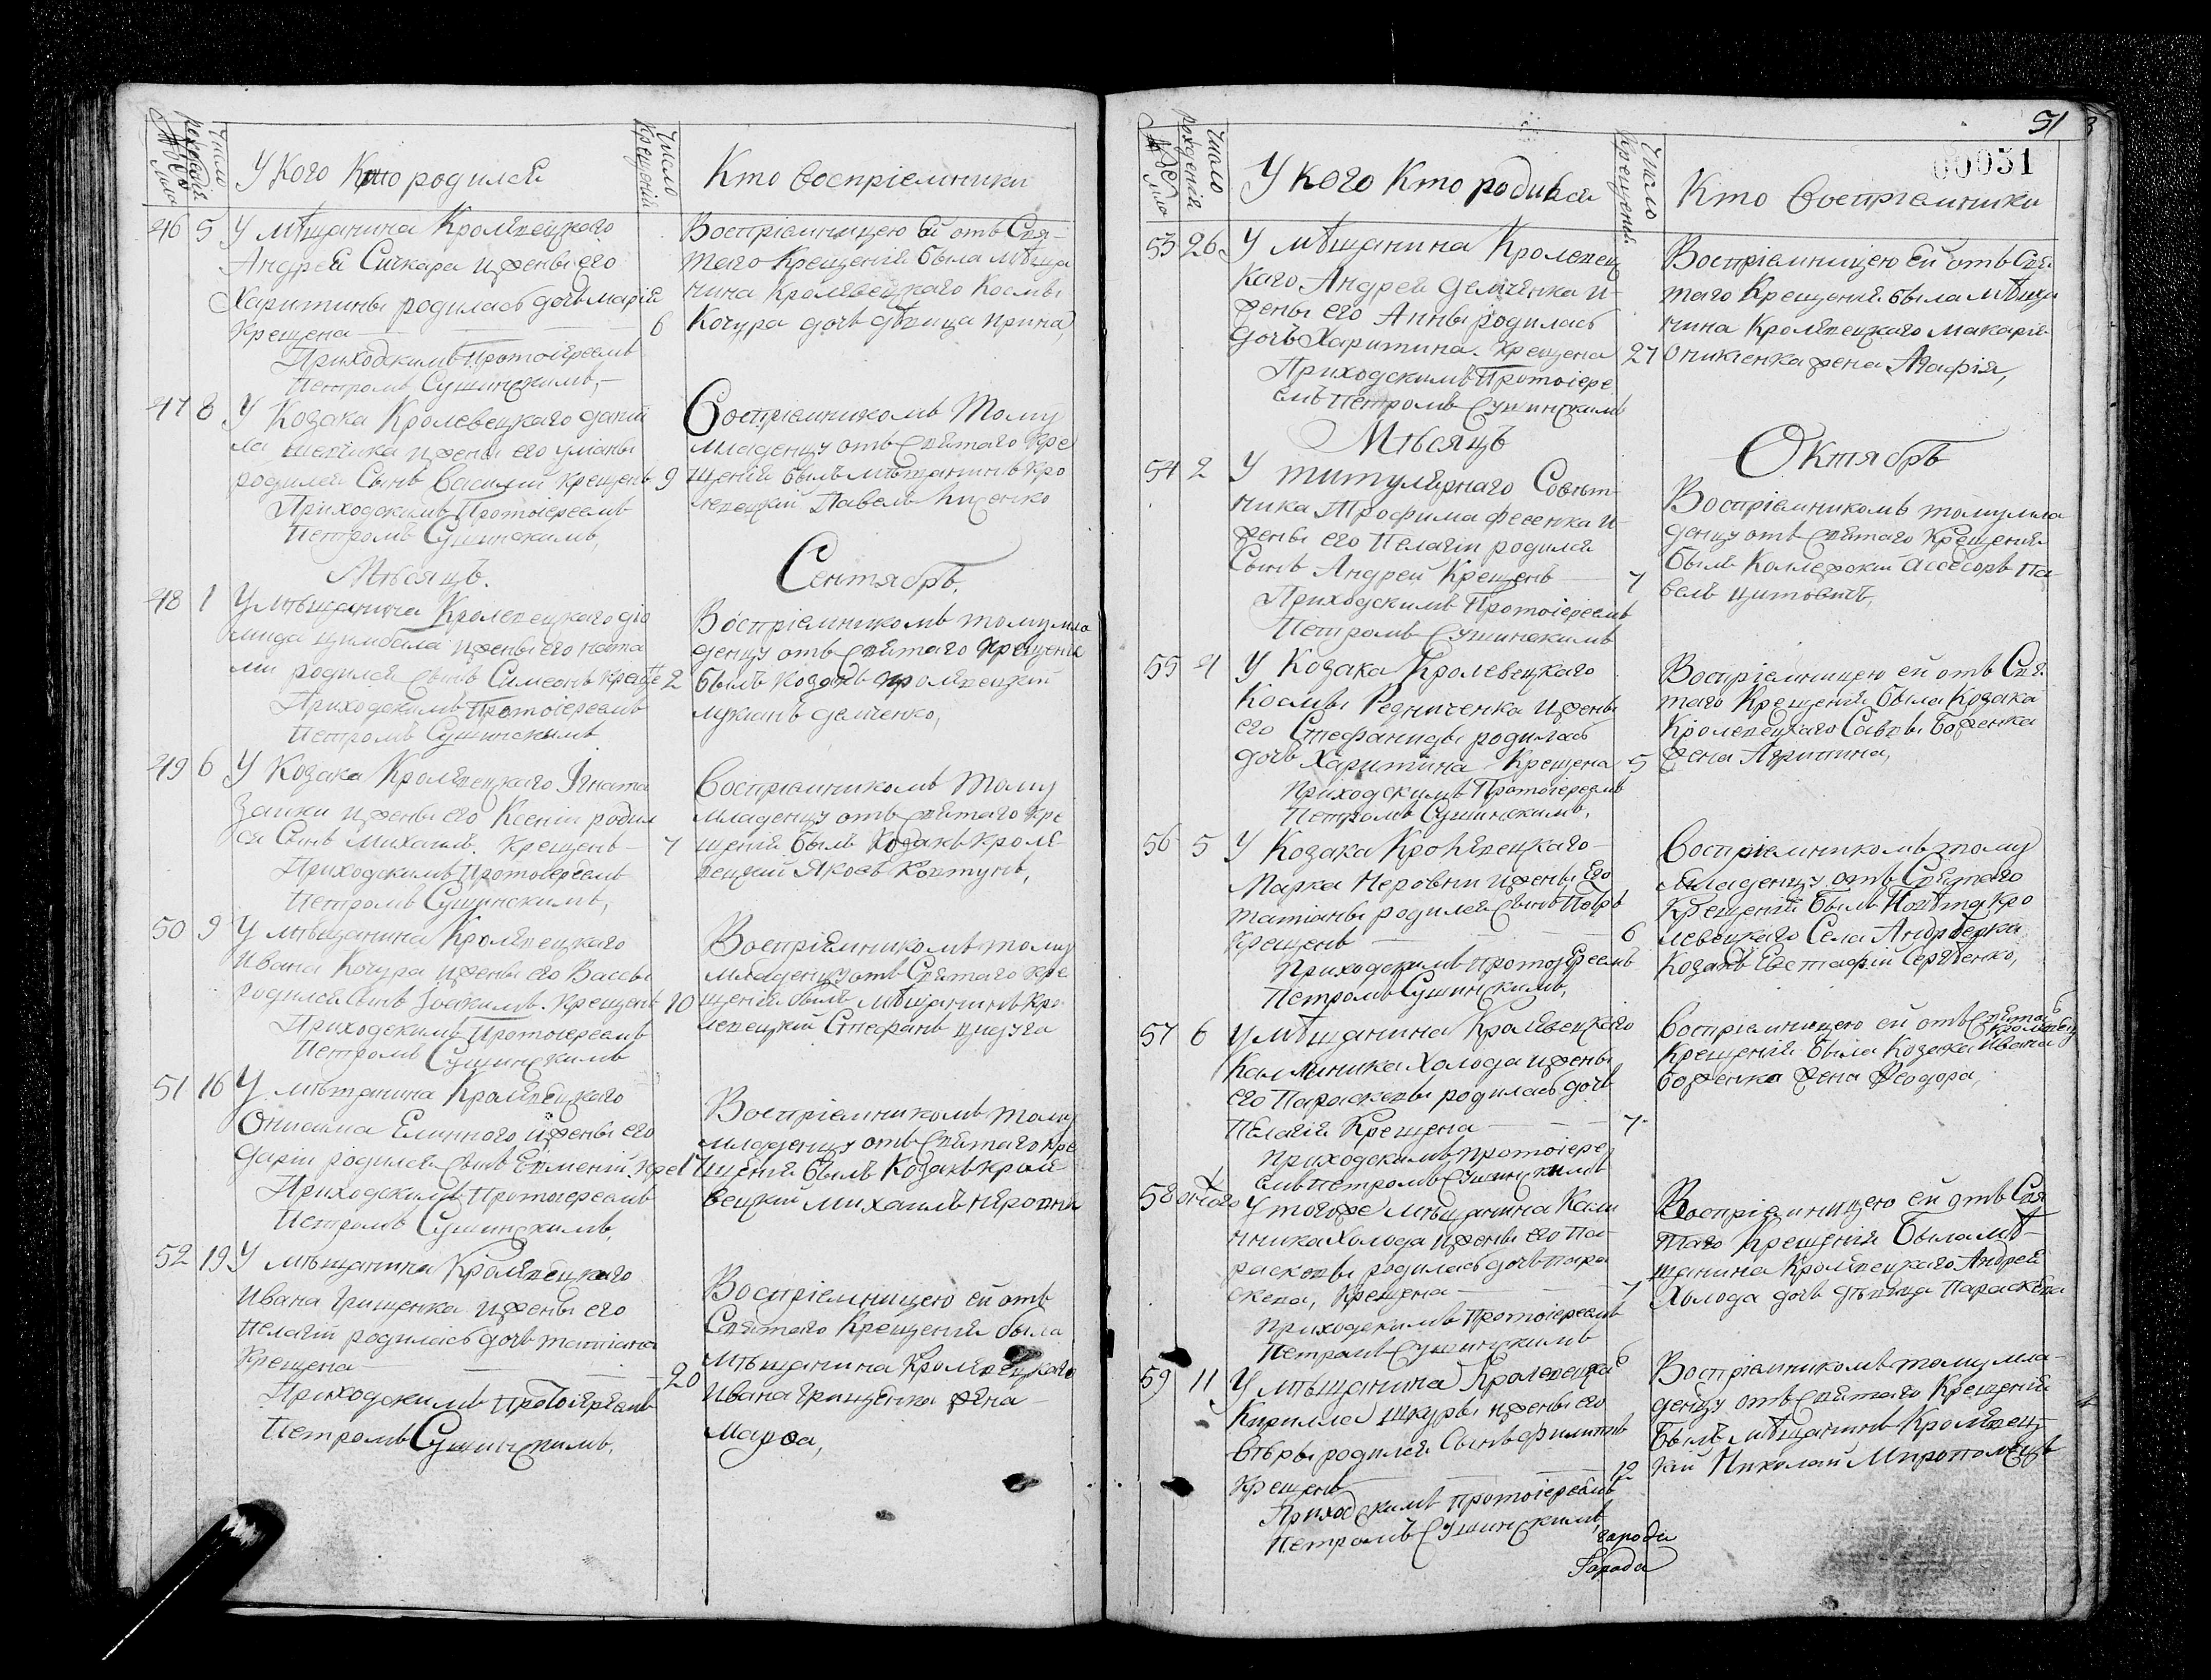 Число рождения
У кого кто родился
Число крещений
Кто восприемники
46 5 У мѣщанина Кролевецкаго
Андрея Сичкара и жены его
Харитины родилась дочь Марія
Крещена 6
Приходскимъ Протоіереемъ
Петромъ Сушинскимъ,
Воспріемницею ей отъ Свя-
таго Крещенія была мѣща
нина Кролевецкаго Космы
Кочура дочь дѣвица Ирина,
47 8 У Козака Кролевецкаго Дании
ла и жены его Уліаны
родился Сынъ Василий крещенъ 9
Приходскимъ Протоіереемъ
Петромъ Сушинскимъ,
Воспріемникомъ тому
младенцу отъ Святаго Кре
щенія былъ мѣщанинъ Кро
левецкій Павелъ
Мѣсяцъ.
Сентябрь.
48 1 У мѣщанина Кролевецкаго Діо
мида Цимбала и жены его Ната
ліи родился сынъ Симеонъ креще 2
Приходскимъ Протоіереемъ
Петромъ Сушинскимъ
Воспріемникомъ тому мла
денцу отъ Святаго Крещенія
былъ Козакъ Кролевецкий
Лукианъ Демченко,
49 6 У Козака Кролевецкаго Игната
Заики и жены его Ксении родил
ся Сынъ Михаилъ. Крещенъ 7
Приходскимъ Протоіереемъ
Петромъ Сушинскимъ,
Воспріемникомъ тому
младенцу отъ Святаго Кре
щенія былъ Козакъ Кроле-
вецкій Яковъ Ковтунъ,
50 9 У мѣщанина Кролевецкаго
Ивана Кочура и жены его Вассы
родился сынъ Іоакимъ. Крещенъ 10
Приходскимъ Протоіереемъ
Петромъ Сушинскимъ
Воспріемникомъ тому
младенцу отъ Святаго Кре
щенія былъ мѣщанинъ Кро
левецкий Стефанъ
51 16 У мѣщанина Кролевецкаго
Онисима Елинного и жены его
Даріи родился сынъ Евмений. Кре 17
Приходскимъ Протоіереемъ
Петромъ Сушинскимъ,
Воспріемникомъ тому
младенцу отъ Святаго Кре
щенія былъ Козакъ Кроле
вецкий Михаилъ Неровня
52 19 У мѣщанина Кролевецкаго
Ивана Грищенка и жены его
Пелагіи родилась дочь Татіана
Крещена 20
Приходскимъ Протоіереемъ
Петромъ Сушинскимъ,
Воспріемницею ей отъ
Святаго Крещенія была
мѣщанина Кролевецкаго
Ивана Грищенка жена
Марѳа,
51
00051
Число рожденія
У кого кто родился
Число крещеній
Кто воспріемники
53 26 У мѣщанина Кролевец
каго Андрея Демченка и
жены его Анны родилась
дочь Харитина. Крещена 27
Приходскимъ Протоіере
емъ Петромъ Сушинскимъ
Воспріемницею ей отъ Свя
таго Крещенія была мѣща
нина Кролевецкаго Макарія
Оникіенка жена Агафія,
Мѣсяцъ
Октябрь
54 2 У титулярнаго Совѣт-
ника Трофима Фесенка и
жены его Пелагіи родился
Сынъ Андрей Крещенъ 7
Приходскимъ Протоіереемъ
Петромъ Сушинскимъ
Воспріемникомъ тому мла
денцу отъ Святаго Крещенія
былъ Коллежский Асесоръ Па-
велъ Цитовичъ,
55 4 У Козака Кролевецкаго
Космы Редниченка и жены
его Стефаниды родилась
дочь Харитина Крещена 5
Приходскимъ Протоіереемъ
Петромъ Сушинскимъ,
Воспріемницею ей отъ Свя
таго Крещенія была Козака
Кролевецкаго Саввы Боженка
жена Агрипина,
56 5 У Козака Кролевецкаго
Марка Неровни и жены Его
Татіаны родился Сынъ Петръ
Крещенъ 6
Приходскимъ Протоіереемъ
Петромъ Сушинскимъ,
Воспріемникомъ тому
младенцу отъ Святаго
Крещенія былъ Повѣта Кро
левецкаго Села
Козакъ Евстафій Сергѣенко,
57 6 У мѣщанина Кролевецкаго
Каллиника Холода и жены
его Параскевы родилась дочь
Пелагія Крещена 7
Приходскимъ Протоіере
емъ Петромъ Сушинскимъ
Воспріемницею ей отъ Святаго
Крещенія была Козака Ивана
Боженка жена Феодора,
58 У того же мѣщанина Кали
нника Холода и жены его Па-
раскевы родилась дочь Пара
скева, Крещена 7
Приходскимъ Протоіереемъ
Петромъ Сушинскимъ
Воспріемницею ей отъ Свя
таго Крещенія была мѣ-
щанина Кролевецкаго Андрея
Холода дочь дѣвица Параскева
59 11 У мѣщанина Кролевецкаго
Кирилла Шкуры и жены его
Вѣры родился Сынъ Филиппъ
Крещенъ 12
Приходскимъ Протоіереемъ
Петромъ Сушинскимъ,
Воспріемникомъ тому мла-
денцу отъ Святаго Крещенія
былъ мѣщанинъ Кролевец-
кий Николай Миропольецъ
города
Города